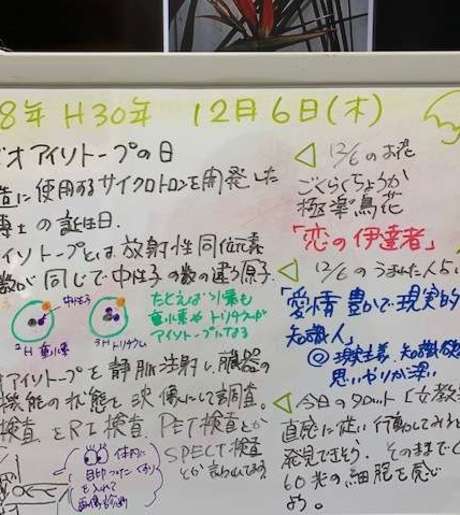 8年 H30年 12月6日(木)
オアイソトープの日
造に使用するサイクロトロンを開発した
博士の誕生日.
イソトープとは放射性同位元素
数が同じで中性子の数の違う原子.
中性子
²H 重水素
³H トリチウム
たとえば水素も
重水素やトリチウムが
アイソトープになる
オアイソトープを静脈注射し、臓器の
機能の状態を映像にして調査。
検査をRI検査、PET検査とか
SPECT検査
とか言われてる
体内に
目印つけたくすり
を入れて
画像診断
◁ 12/6 のお花
ごくらくちょうか
極楽鳥花
「恋の伊達者」
◁ 12/6 のうまれた人占い
「愛情豊かで現実的
知識人」
◎ 現実主義、知識欲
思いやりが深い
◁ 今日のタロット「女教
直感に従い行動してみると
発見できそう. そのまで
60兆の細胞を感じ
め。